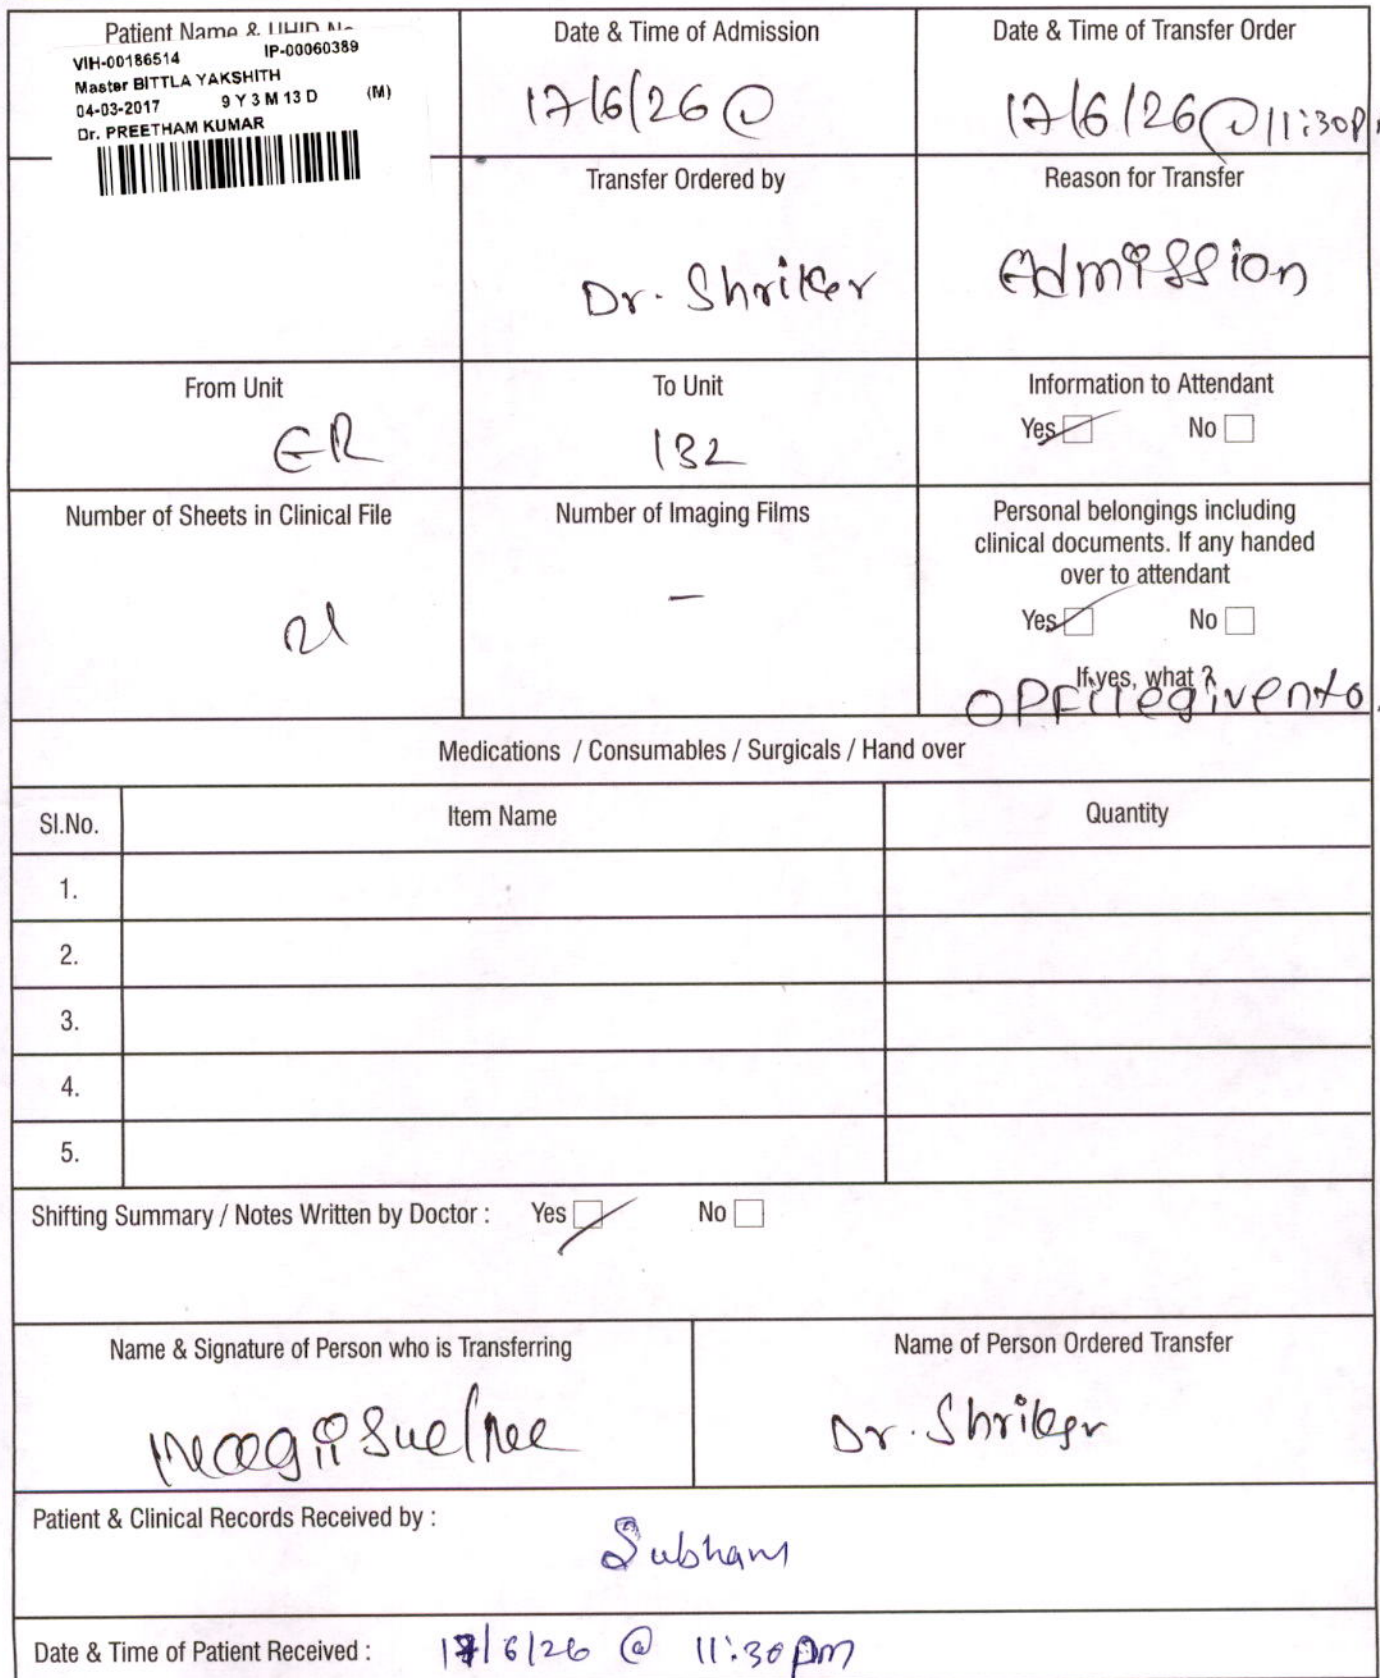 Patient Name & UHID No
VIH-00186514 IP-00060389
Master BITTLA YAKSHITH
04-03-2017 9 Y 3 M 13 D (M)
Dr. PREETHAM KUMAR
Date & Time of Admission
17/6/26 @
Date & Time of Transfer Order
17/6/26 @ 11:30p
Transfer Ordered by
Dr. Shriker
Reason for Transfer
Admission
From Unit
ER
To Unit
132
Information to Attendant
Yes No
Number of Sheets in Clinical File
21
Number of Imaging Films
–
Personal belongings including
clinical documents. If any handed
over to attendant
Yes No
If yes, what ?
OP File given to
Medications / Consumables / Surgicals / Hand over
Sl.No. Item Name Quantity
1.
2.
3.
4.
5.
Shifting Summary / Notes Written by Doctor : Yes No
Name & Signature of Person who is Transferring
Name of Person Ordered Transfer
Dr. Shriker
Patient & Clinical Records Received by :
Subham
Date & Time of Patient Received : 17/6/26 @ 11:30 pm